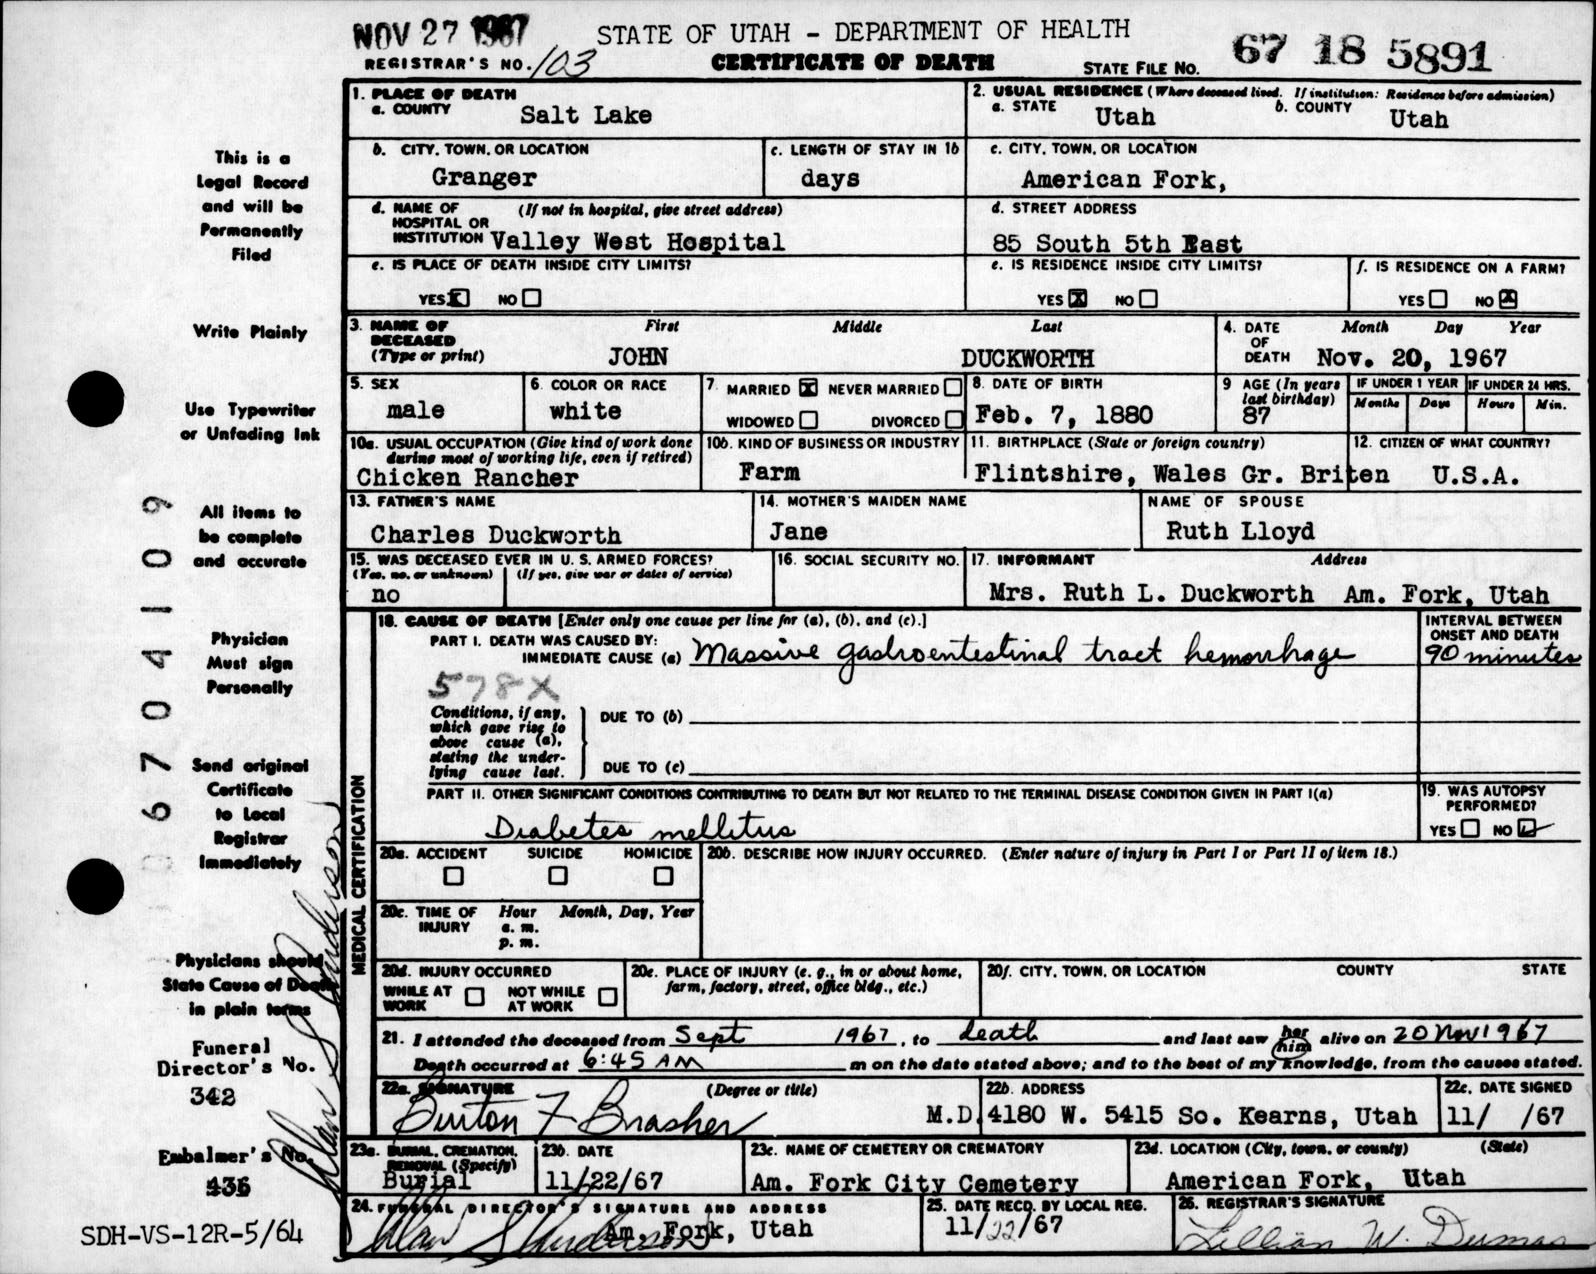 NOV 27 1967
STATE OF UTAH - DEPARTMENT OF HEALTH
67 18 5891
REGISTRAR'S NO. 103
CERTIFICATE OF DEATH
STATE FILE NO.
1. PLACE OF DEATH
a. COUNTY Salt Lake
2. USUAL RESIDENCE (Where deceased lived. If institution: Residence before admission)
a. STATE Utah b. COUNTY Utah
b. CITY, TOWN, OR LOCATION Granger
c. LENGTH OF STAY IN 1b days
c. CITY, TOWN, OR LOCATION American Fork,
d. NAME OF HOSPITAL OR INSTITUTION (If not in hospital, give street address) Valley West Hospital
d. STREET ADDRESS 85 South 5th East
e. IS PLACE OF DEATH INSIDE CITY LIMITS? YES X NO
e. IS RESIDENCE INSIDE CITY LIMITS? YES X NO
f. IS RESIDENCE ON A FARM? YES NO X
3. NAME OF DECEASED (Type or print) First Middle Last
JOHN DUCKWORTH
4. DATE OF DEATH Month Day Year Nov. 20, 1967
5. SEX male
6. COLOR OR RACE white
7. MARRIED X NEVER MARRIED
WIDOWED DIVORCED
8. DATE OF BIRTH Feb. 7, 1880
9 AGE (In years last birthday) 87
IF UNDER 1 YEAR Months Days
IF UNDER 24 HRS. Hours Min.
10a. USUAL OCCUPATION (Give kind of work done during most of working life, even if retired) Chicken Rancher
10b. KIND OF BUSINESS OR INDUSTRY Farm
11. BIRTHPLACE (State or foreign country) Flintshire, Wales Gr. Briten
12. CITIZEN OF WHAT COUNTRY? U.S.A.
13. FATHER'S NAME Charles Duckworth
14. MOTHER'S MAIDEN NAME Jane
NAME OF SPOUSE Ruth Lloyd
15. WAS DECEASED EVER IN U. S. ARMED FORCES?
(Yes, no, or unknown) (If yes, give war or dates of service)
no
16. SOCIAL SECURITY NO.
17. INFORMANT Address
Mrs. Ruth L. Duckworth Am. Fork, Utah
MEDICAL CERTIFICATION
18. CAUSE OF DEATH [Enter only one cause per line for (a), (b), and (c).]
INTERVAL BETWEEN ONSET AND DEATH
PART I. DEATH WAS CAUSED BY:
IMMEDIATE CAUSE (a) Massive gastroentestinal tract hemorrhage 90 minutes
578X
Conditions, if any, which gave rise to above cause (a), stating the underlying cause last.
DUE TO (b)
DUE TO (c)
PART II. OTHER SIGNIFICANT CONDITIONS CONTRIBUTING TO DEATH BUT NOT RELATED TO THE TERMINAL DISEASE CONDITION GIVEN IN PART I(a)
Diabetes mellitus
19. WAS AUTOPSY PERFORMED?
YES NO
20a. ACCIDENT SUICIDE HOMICIDE
20b. DESCRIBE HOW INJURY OCCURRED. (Enter nature of injury in Part I or Part II of item 18.)
20c. TIME OF INJURY Hour Month, Day, Year
a. m.
p. m.
20d. INJURY OCCURRED
WHILE AT WORK NOT WHILE AT WORK
20e. PLACE OF INJURY (e. g., in or about home, farm, factory, street, office bldg., etc.)
20f. CITY, TOWN, OR LOCATION COUNTY STATE
21. I attended the deceased from Sept 1967, to death and last saw her him alive on 20 Nov 1967
Death occurred at 6:45 AM m on the date stated above; and to the best of my knowledge, from the causes stated.
22a. SIGNATURE (Degree or title)
Burton F Brasher M.D.
22b. ADDRESS 4180 W. 5415 So. Kearns, Utah
22c. DATE SIGNED 11/ /67
23a. BURIAL, CREMATION, REMOVAL (Specify) Burial
23b. DATE 11/22/67
23c. NAME OF CEMETERY OR CREMATORY Am. Fork City Cemetery
23d. LOCATION (City, town, or county) (State)
American Fork, Utah
24. FUNERAL DIRECTOR'S SIGNATURE AND ADDRESS
Alan S Anderson Am. Fork, Utah
25. DATE RECD. BY LOCAL REG. 11/22/67
26. REGISTRAR'S SIGNATURE
Lillian W. Dumas
This is a
Legal Record
and will be
Permanently
Filed
Write Plainly
Use Typewriter
or Unfading Ink
All items to
be complete
and accurate
Physician
Must sign
Personally
Send original
Certificate
to Local
Registrar
Immediately
Physicians should
State Cause of Death
in plain terms
Funeral
Director's No.
342
Embalmer's No.
436
Alan S Anderson
67041109
SDH-VS-12R-5/64